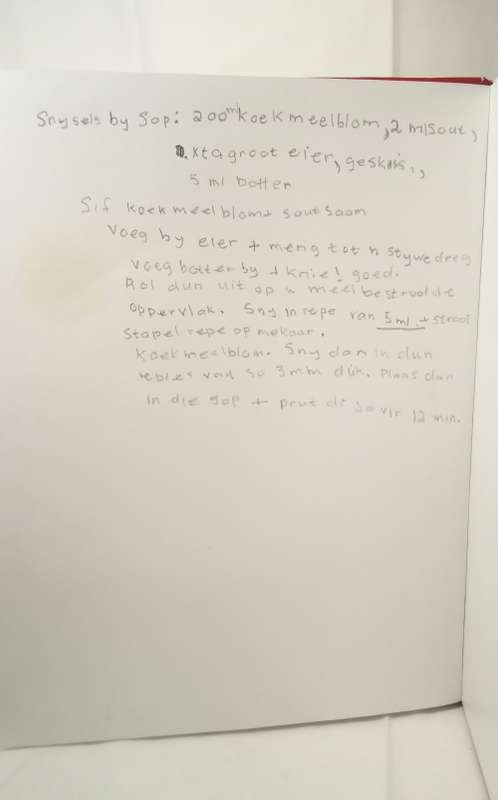 Snysels by Sop: 200 ml koekmeelblom, 2 ml sout,
1. Xtagroot eier, geskis.,
5 ml botter
Sif koekmeelblom + sout saam
Voeg by eier + meng tot 'n stywe deeg
voeg botter by + knie! goed.
Rol dun uit op 'n meelbestrooide
oppervlak. Sny in repe van 5 ml. + strooi
Stapel repe op mekaar.
koekmeelblom. Sny dan in dun
van so 3mm dik. Plaas dan
in die sop + prut dit so vir 12 min.